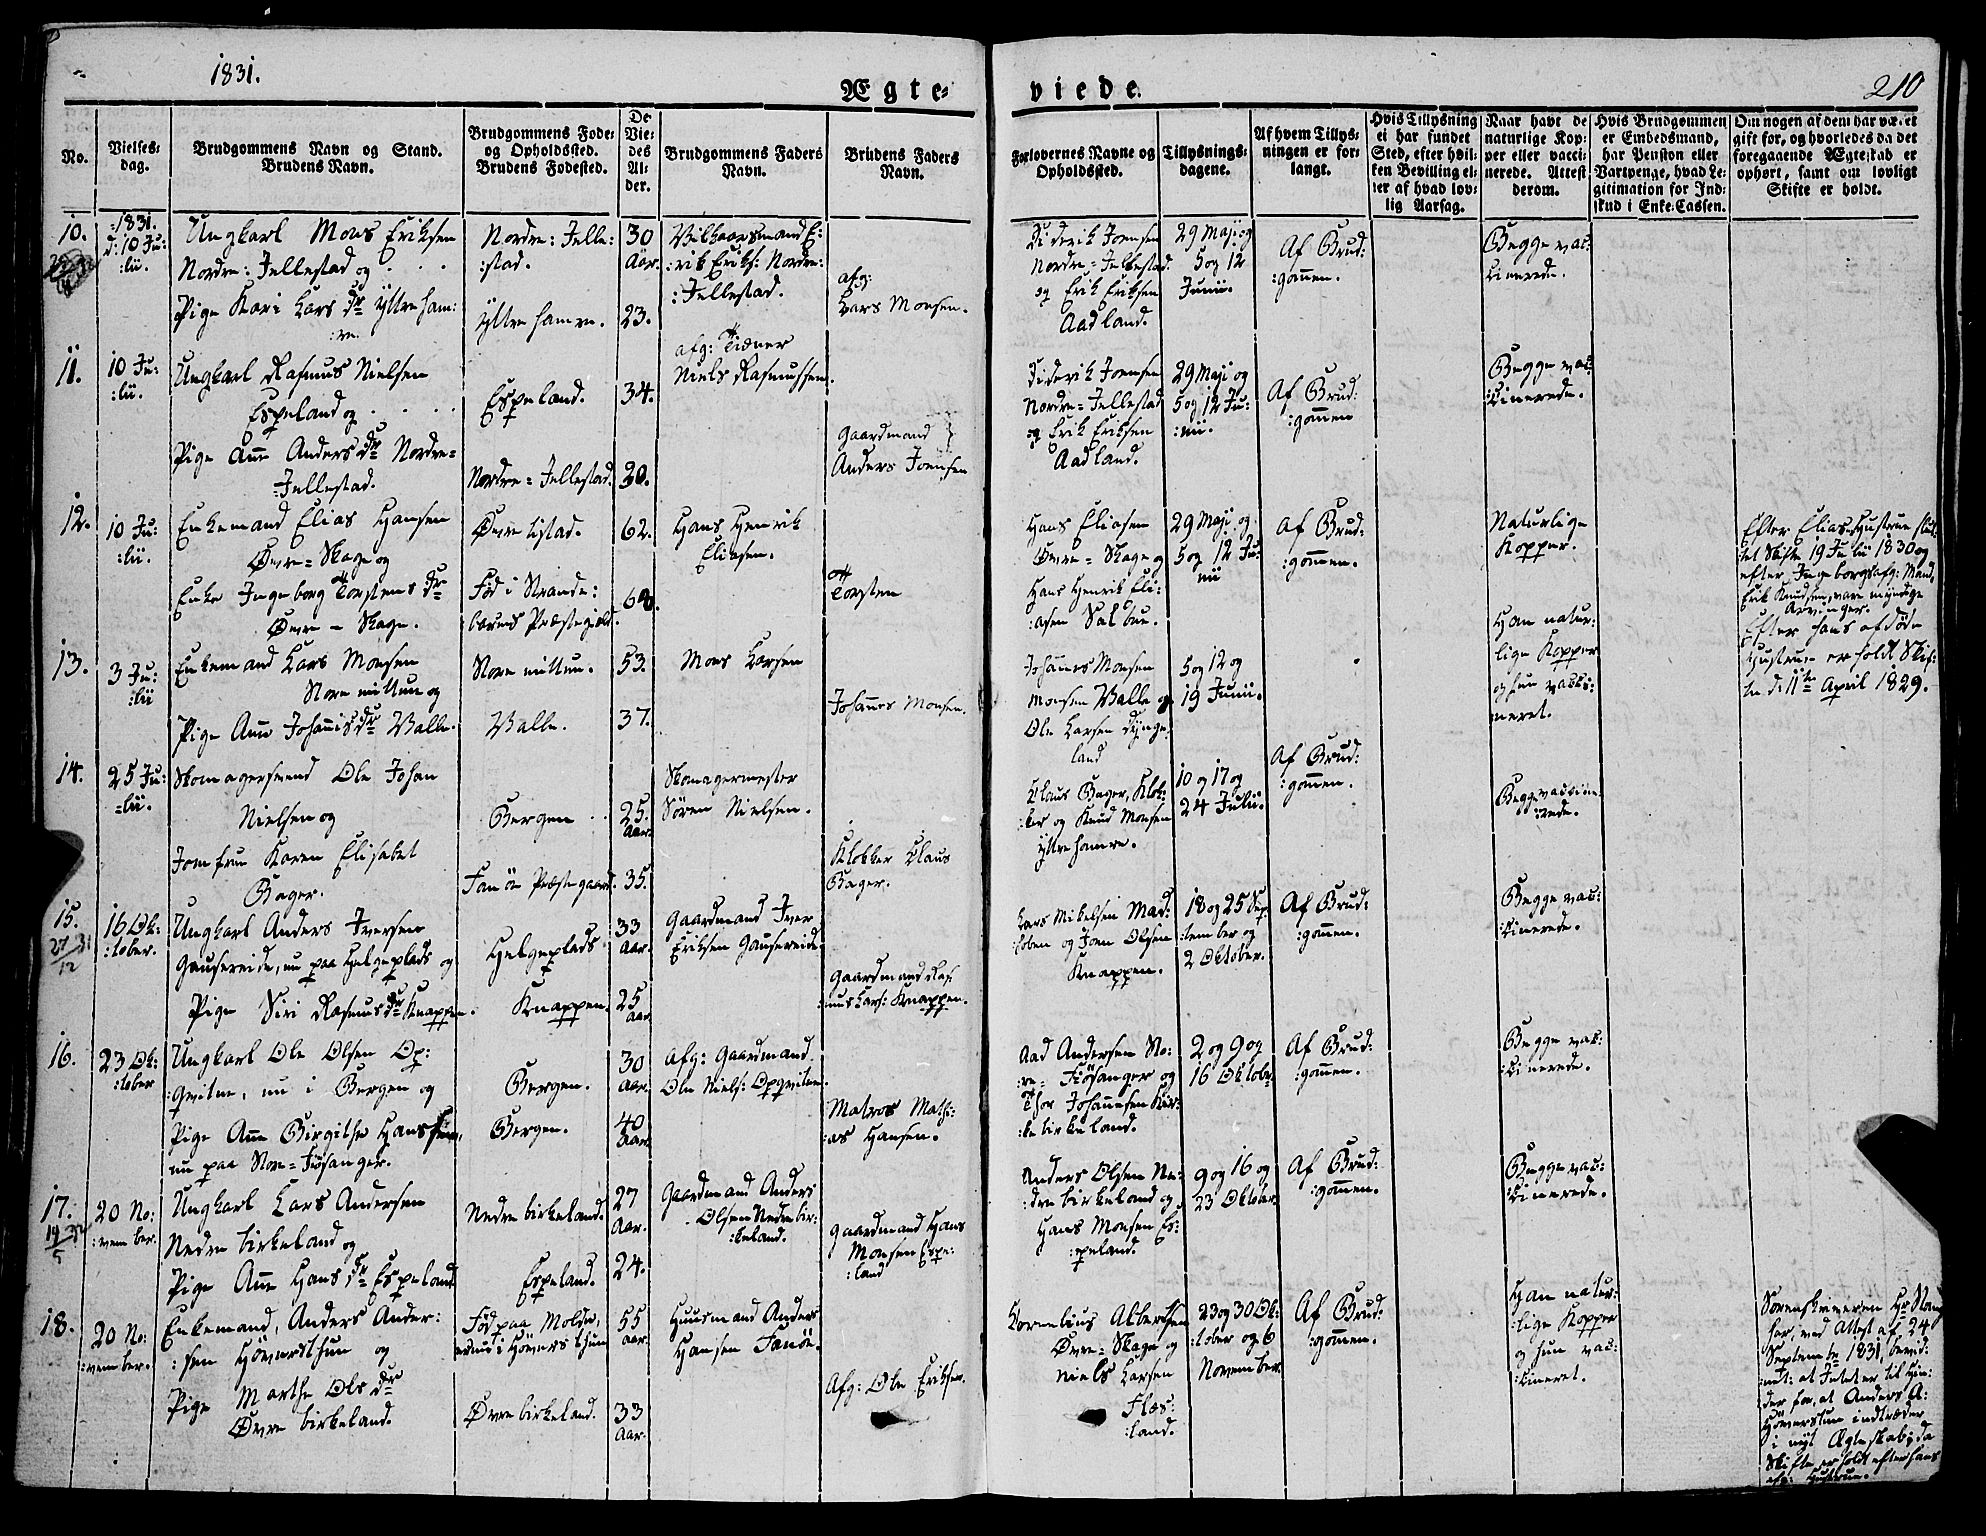 1831.
Ægte-
viede.
210
No.
Vielses-
dag.
Brudgommens Navn og Stand.
Brudens Navn.
Brudgommens Føde-
og Opholdssted.
Brudens Fødested.
De
Vie-
des
Al-
der.
Brudgommens Faders
Navn.
Brudens Faders
Navn.
Forlovernes Navne og
Opholdssted.
Tillysnings-
dagene.
Af hvem Tillys-
ningen er for-
langt.
Hvis Tillysning
ei har fundet
Sted, efter hvil-
ken Bevilling el-
ler af hvad lov-
lig Aarsag.
Naar havt de
naturlige Kop-
per eller vacci-
nerede. Attest
derom.
Hvis Brudgommen
er Embedsmand,
har Pension eller
Vartpenge, hvad Le-
gitimation for Ind-
skud i Enke-Cassen.
Om nogen af dem har været
gift før, og hvorledes da det
foregaaende Ægteskab er
ophørt, samt om lovligt
Skifte er holdt.
10.
1831.
d: 10 Ju:
:lii.
Ungkarl Mons Eriksen
Nordre: Jellestad og
Pige Kari Lars dr Yttre ham:
:re.
Nordre: Jelle:
:stad.
Yttre hamre.
30
Aar.
23.
Vilkaarsmand E:
:rik Eriks: Nordre:
:Jellestad.
afg:
Lars Monsen.
Diderik Joensen
Nordre-Jellestad
og Erik Eriksen
Aadland.
29 Maji og
5 og 12
Junii.
Af Brud:
:gommen.
Begge vac:
:cinerede.
11.
10 Ju:
:lii.
Ungkarl Rasmus Nielsen
Espeland og
Pige Anne Anders dr Nordre=
=Jellestad.
Espeland.
Nordre=Jellestad.
34.
30.
afg:
Niels Rasmussen.
Gaardmand
Anders Joensen
Diderik Joensen
Nordre=Jellestad
og Erik Eriksen
Aadland.
29 Maji og
5 og 12 Ju:
:nii.
Af Brud:
:gommen
Begge vac:
:cinerede.
12.
10 Ju:
:lii.
Enkemand Elias Hansen
Øvre=Skage og
Enke Ingeborg Torstens dr
Øvre - Skage.
Øvre tistad.
Fød i Strande:
barms Præstegield.
62.
Hans Henrik
Eliasen.
Torsten
Hans Eliasen
Øvre=Skage og
Hans Henrik Eli:
:asen Salbue.
29 Maji og
5 og 12 Ju:
nii
Af Brud:
:gommen.
Naturlige
Kopper.
Efter Elias Hustrue slut:
tet Skifte 19 Julii 1830 og
efter Ingeborgs afg: Mand,
Erik Knudsen, vare myndige
Arvinger.
13.
3 Ju:
:lii
Enkemand Lars Monsen
Store mittun og
Pige Anne Johannis dr Valle.
Store mittun.
Valle.
53.
37.
Mons Larsen
Johannes Monsen.
Johannes Monsen
Monsen Valle og
Ole Larsen Dynge
land
5 og 12 og
19 Junii.
Han natur:
lige Kopper
og hun vacci:
neret.
Efter hans afdøde
Hustrue er holdt Skif:
te d: 11te April 1829.
14.
25 Ju:
=lii.
Skomagersvend Ole Johan
Nielsen og
Jomfrue Karen Elisabet
Bager.
Bergen
Fanøe Præstegaard.
25.
Aar.
35.
Skomagermester
Søren Nielsen.
Klokker Claus
Bager.
Claus Bager, Klok:
:ker og Knud Monsen
Yttre hamre.
10 og 17 og
24 Julii.
Af Brud:
:gommen.
Begge vaccine
:rede.
15.
16 Ok:
:tober.
Ungkarl Anders Iversen
Gausereide, nu paa Helgeplads og
Pige Siri Rasmus dr Knappen.
Helgeplads
Knappen.
33
Aar.
25
Aar.
Gaardmand Iver
Eriksen Gausereide.
Gaardmand Ras
:mus Lars: Knappen.
Lars Mikelsen Mad:
:loben og Joen Olsen
Knappen.
18 og 25 Sep
:tember og
2 Oktober.
Af Brud:
:gommen.
Begge vac:
:cinerede.
16.
23 Ok:
:tober
Ungkarl Ole Olsen Op:
:qvitne, nu i Bergen og
Pige Anne Birgithe Hans
nu paa Store=Fiøsanger.
Bergen.
Bergen.
30
Aar.
40
Aar.
Afg: Gaardmand
Ole Niels: Opqvitne.
Matros Mathi:
:as Hansen.
Aad Andersen Sto:
:re= Fiøsanger og
Thor Johannesen Kir:
:ke birkeland.
2 og 9 og
16 Oktober
Af Brud:
:gommen.
Begge vac:
:cinerede.
17.
20 No:
:vember.
Ungkarl Lars Andersen
Nedre birkeland og
Pige Anne Hans dr Espeland
Nedre birkeland.
Espeland.
27
Aar.
24.
Gaardmand Anders
Olsen Nedre bir:
:keland.
Gaardmand Hans
Monsen Espe:
:land
Anders Olsen Ne:
:dre birkeland og
Hans Monsen Es:
:peland.
9 og 16 og
23 Oktober
Af Brud:
:gommen.
Begge vac:
:cinerede.
18.
20 No:
:vember.
Enkemand, Anders Ander:
:sen Höversthun og
Pige Marthe Ols dr
Øvre birkeland.
Fød paa Moldne,
Øvre birkeland.
55
Aar.
33
Aar.
Huusmand Anders
Hansen Fanöe.
Afg: Ole Eriksen.
Kornelius Albertsen
Øvre=Skage og
Niels Larsen
Flæs:
:land.
23 og 30 Ok:
:tober og 6
November.
Af Brud:
:gommen.
Han natur:
:lige Kopper
og hun vac:
:cineret.
Sorenskriveren Hr
ved Attest af 24
September 1831, bevid:
net: at Intet er til Hin:
der for, at Anders A:
Höverstun indtræder
i nyt Ægteskab; da
Skifte er holdt efter hans
afg: Hustrue.